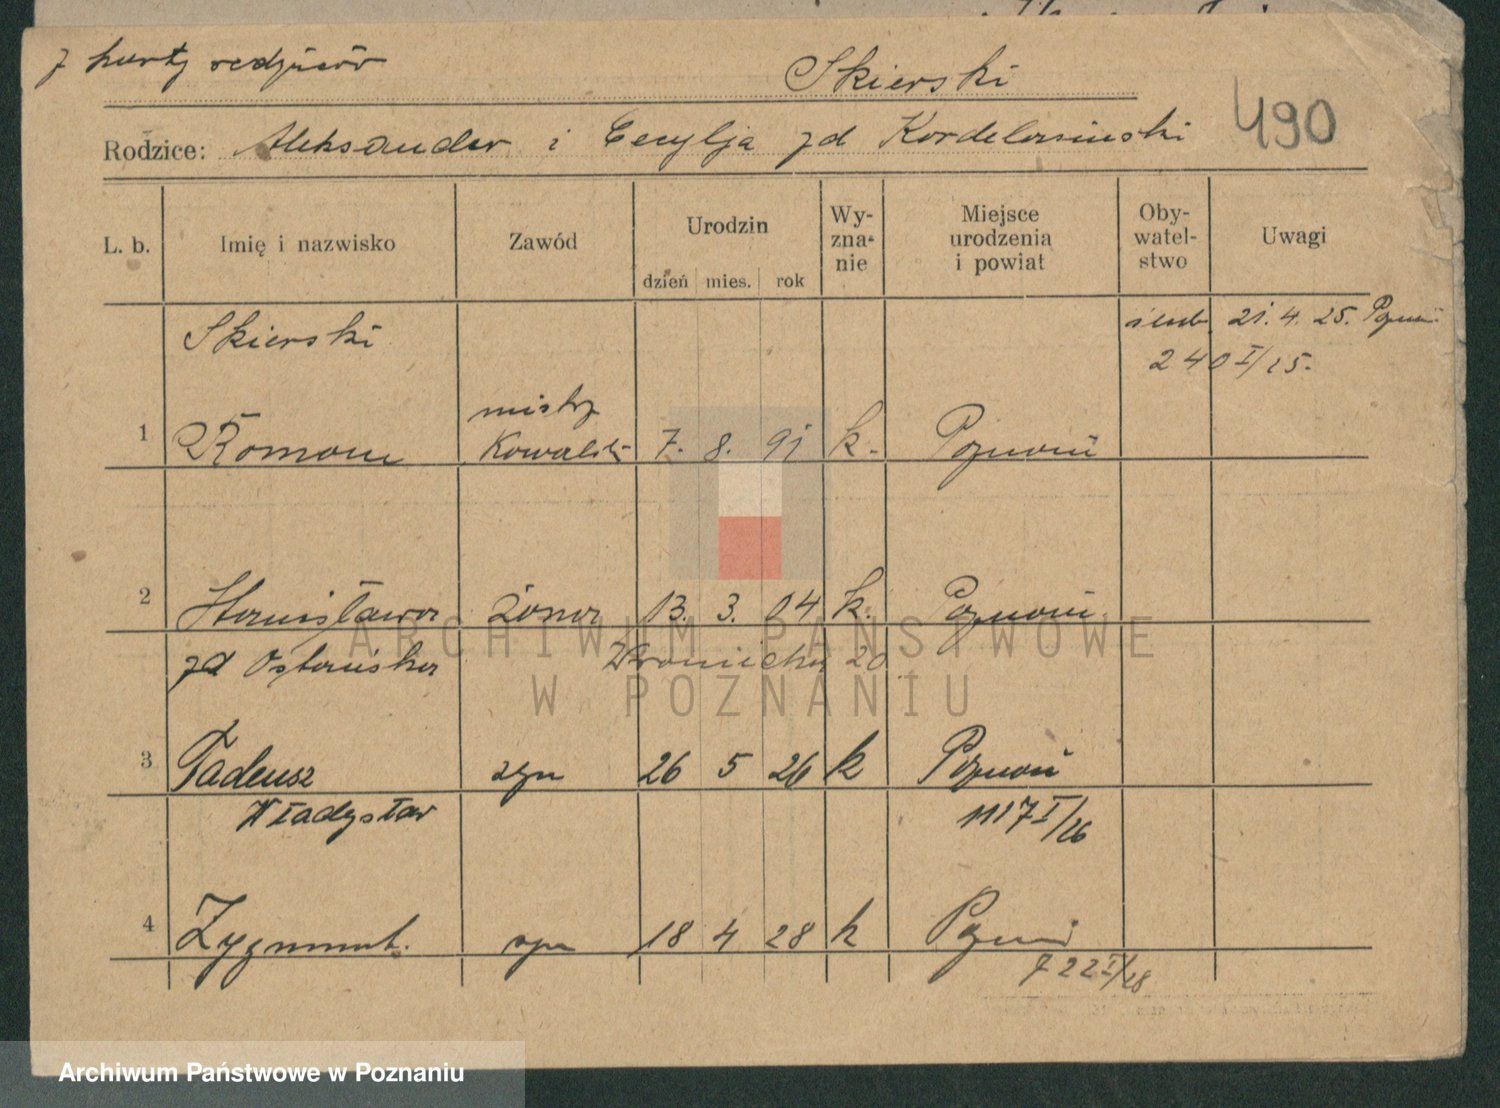 z karty rodziców
Skierski
490
Rodzice: Aleksander i Cecylja zd
L. b.
Imię i nazwisko
Zawód
Urodzin
dzień mies. rok
Wy-
zna-
nie
Miejsce
urodzenia
i powiat
Oby-
watel-
stwo
Uwagi
Skierski
ślub 21. 4. 25. Poznań
240 I/25.
1 Roman mistrz Kowalski 7. 8. 91 k. Poznań
2 Stanisława żona 13. 3. 04 k. Poznań
zd 20
3 Tadeusz syn 26 5 26 k Poznań
Władysław 1117 I/26
4 Zygmunt. syn 18 4 28 k Poznań
722 I/28
ARCHIWUM PAŃSTWOWE
W POZNANIU
Archiwum Państwowe w Poznaniu